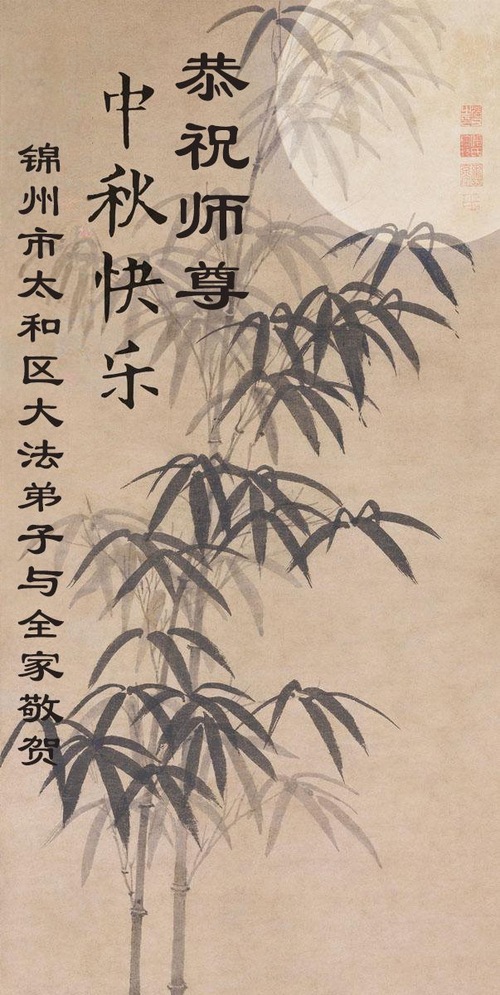 恭祝师尊
中秋快乐
锦州市太和区大法弟子与全家敬贺